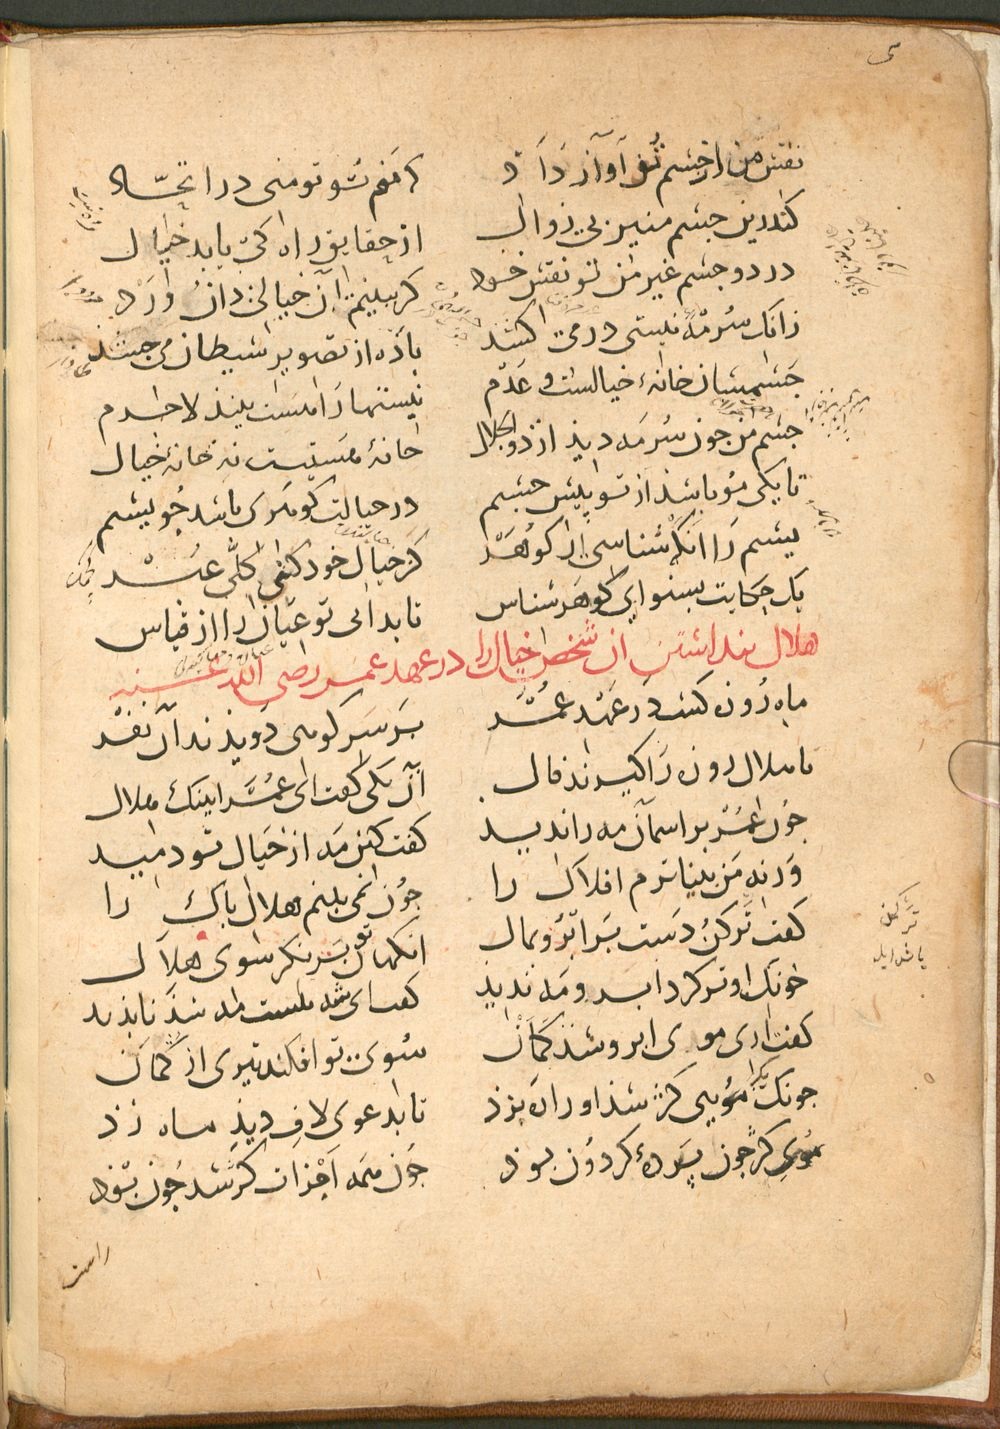 نقش من از چشم تو آواز داد
که منم تو تو منی در اتحاد
کاندرین چشم منیر بی زوال
از حقایق راه کی یابد خیال
در دو چشم غیر من تو نقش خود
گر ببینی آن خیالی دان و رد
زانک سرمهٔ نیستی در می کشد
باده از تصویر شیطان می چشد
چشمشان خانهٔ خیالست و عدم
نیستها را هست بیند لاجرم
چشم من چون سرمه دید از ذو الجلال
خانهٔ هستیست نه خانهٔ خیال
تا یکی مو باشد از تو پیش چشم
در خیالت گوهری باشد چو یشم
یشم را آنگه شناسی از گوهر
کز خیال خود کنی کلی عبر
یک حکایت بشنو ای گوهرشناس
تا بدانی تو عیان را از قیاس
هلال پنداشتن آن شخص خیال را در عهد عمر رضی الله عنه
ماه روزه گشت در عهد عمر
بر سر کوهی دویدند آن نفر
تا هلال روزه را گیرند فال
آن یکی گفت ای عمر اینک هلال
چون عمر بر آسمان مه را ندید
گفت کین مه از خیال تو دمید
ورنه من بیناترم افلاک را
چون نمی بینم هلال پاک را
گفت تر کن دست بر ابرو بمال
آنگهان تو بر نگر سوی هلال
چونک او تر کرد ابرو مه ندید
گفت ای شه نیست مه شد ناپدید
گفت آری موی ابرو شد کمان
سوی تو افکند تیری از گمان
چونک مویی کژ شد او را ره بزد
تا بدعوی لاف دید ماه زد
موی کژ چون پردهٔ گردون بود
چون همه اجزات کژ شد چون بود
راست